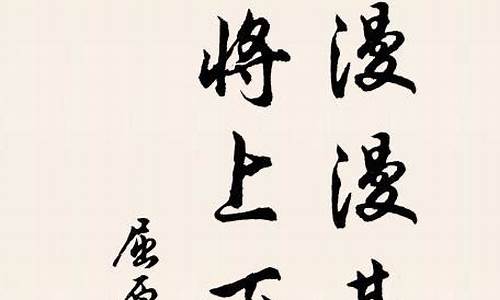 漫漫其
将上下
屈